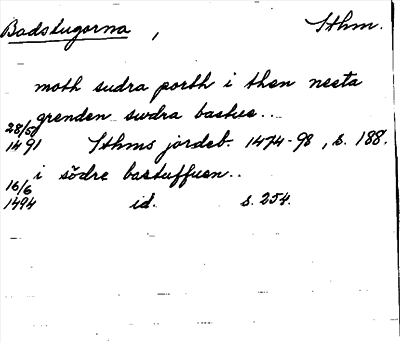 Badstugorna, Sthm.
moth sudra porth i then nesta
grenden swdra bastue..
28/5
1491 Sthms jordeb. 1474-98, s. 188.
i södre bastuffuen..
16/6
1494 id. s. 254.